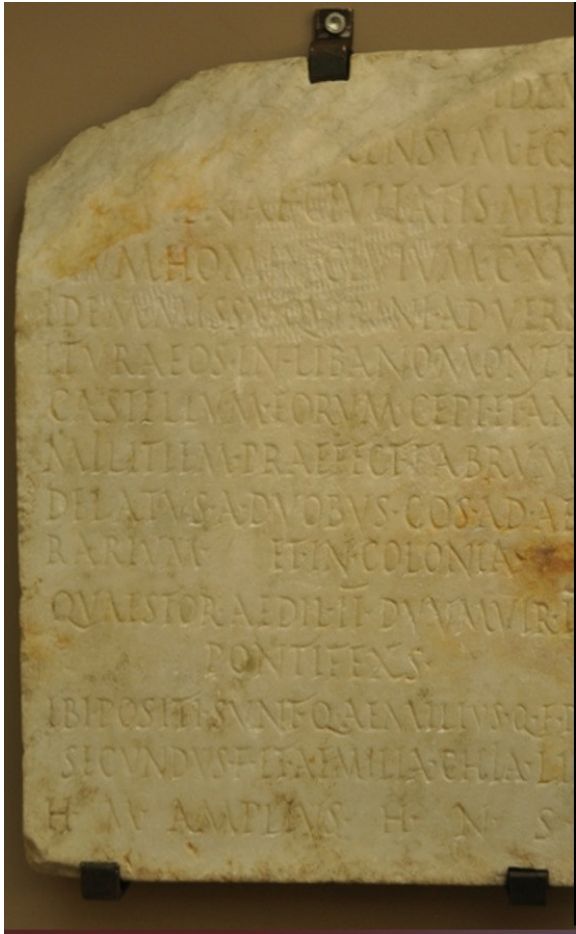 IDEM
CENSVM·EG
NAE·CIVITATIS MIL
HOMIN·CIVIVM·CXV
IDEM·MISSV·QVIRINI·ADVERS
ITVRAEOS·IN·LIBANO·MONTE
CASTELLVM·EORVM·CEPI·ET·AN
MILITIEM·PRAEFECT·FABRVM
DELATVS·A·DVOBVS·COS·AD·AE
RARIVM· ET·IN·COLONIA·
QVAESTOR·AEDIL·II·DVVMVIR·
PONTIFEXS
IBI·POSITI·SVNT·Q·AEMILIVS·Q·F·P
SECVNDVS·F·ET·AEMILIA·CHIA·LI
H· M· AMPLIVS· H· N· S